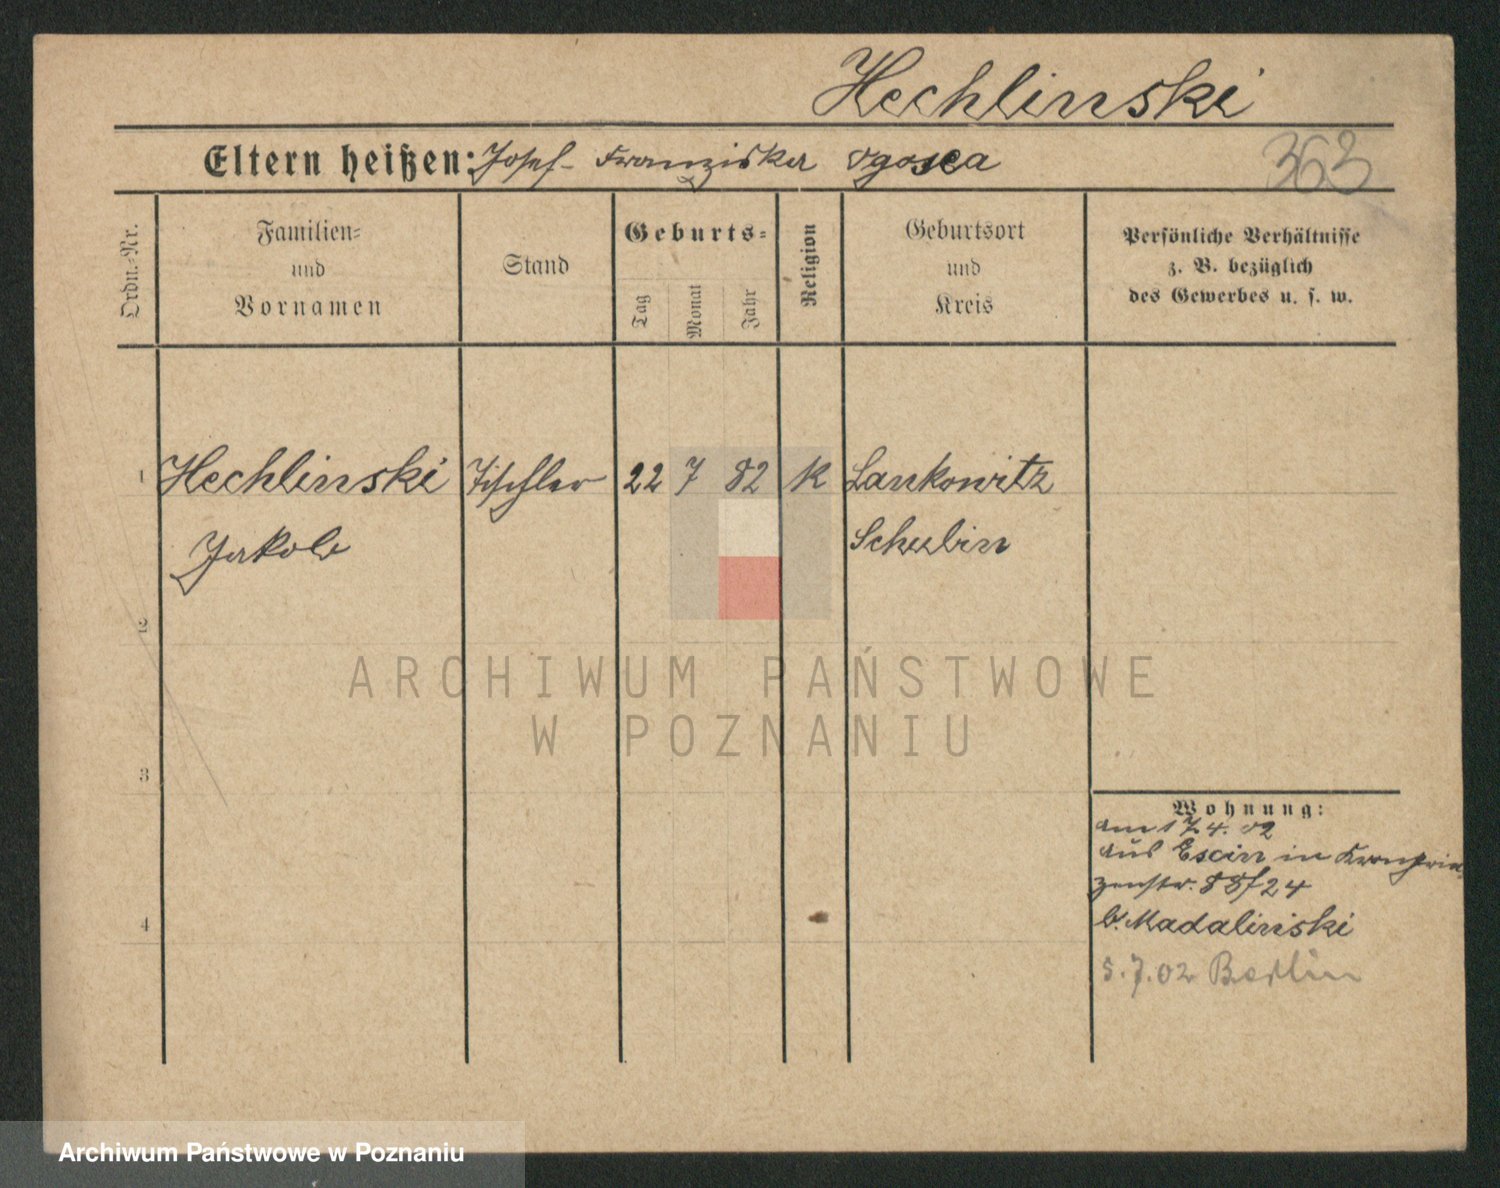 Hechlinski
Eltern heißen: Josef - Franziska
363
Ordn.-Nr.
Familien-
und
Vornamen
Stand
Geburts-
Tag
Monat
Jahr
Religion
Geburtsort
und
Kreis
Persönliche Verhältnisse
z. B. bezüglich
des Gewerbes u. s. w.
1 Hechlinski Tischler 22 7 82 K Lankowitz
Jakob Schubin
2
ARCHIWUM PAŃSTWOWE
W POZNANIU
3
Wohnung:
am 17 4. 02
aus in Kronprin
zenstr. 88/24
b. Madalinski
4
5.7.02 Berlin
Archiwum Państwowe w Poznaniu